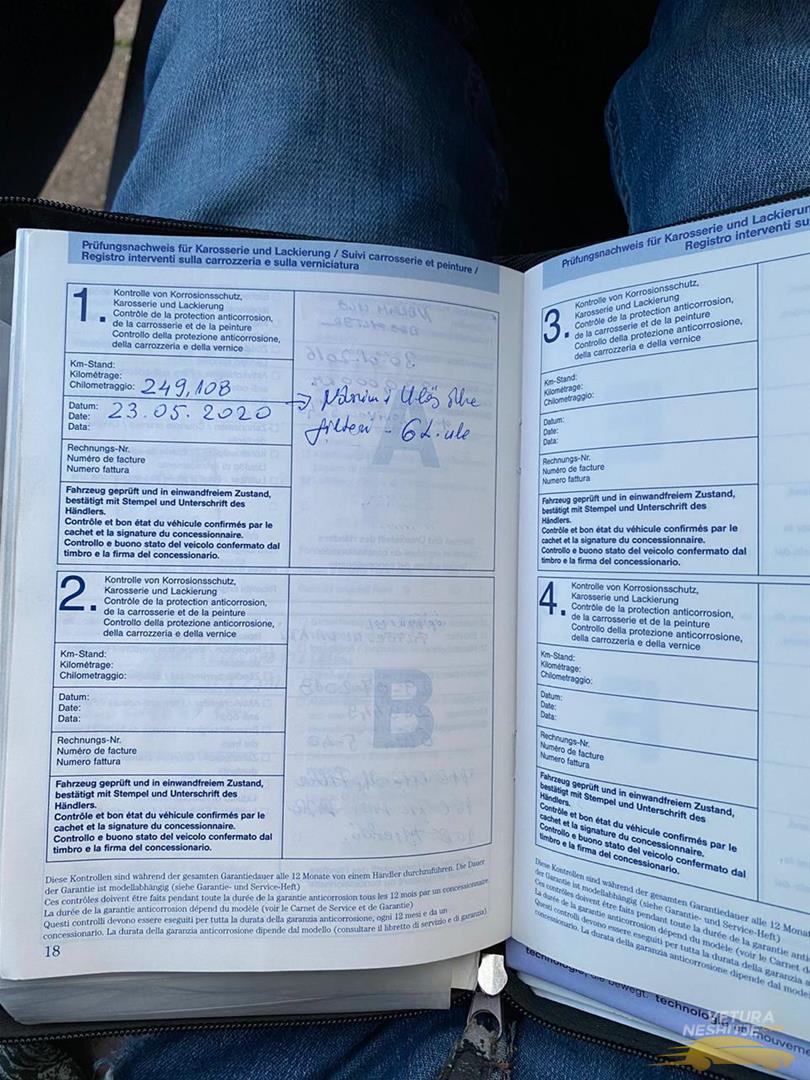 Prüfungsnachweis für Karosserie und Lackierung / Suivi carrosserie et peinture /
Registro interventi sulla carrozzeria e sulla verniciatura
1.
Kontrolle von Korrosionsschutz,
Karosserie und Lackierung
Contrôle de la protection anticorrosion,
de la carrosserie et de la peinture
Controllo della protezione anticorrosione,
della carrozzeria e della vernice
Km-Stand:
Kilométrage:
Chilometraggio: 249,108
Datum:
Date: 23.05.2020
Data:
filteri - 6 L. ule
Rechnungs-Nr.
Numéro de facture
Numero fattura
Fahrzeug geprüft und in einwandfreiem Zustand,
bestätigt mit Stempel und Unterschrift des
Händlers.
Contrôle et bon état du véhicule confirmés par le
cachet et la signature du concessionnaire.
Controllo e buono stato del veicolo confermato dal
timbro e la firma del concessionario.
2.
Kontrolle von Korrosionsschutz,
Karosserie und Lackierung
Contrôle de la protection anticorrosion,
de la carrosserie et de la peinture
Controllo della protezione anticorrosione,
della carrozzeria e della vernice
Km-Stand:
Kilométrage:
Chilometraggio:
Datum:
Date:
Data:
Rechnungs-Nr.
Numéro de facture
Numero fattura
Fahrzeug geprüft und in einwandfreiem Zustand,
bestätigt mit Stempel und Unterschrift des
Händlers.
Contrôle et bon état du véhicule confirmés par le
cachet et la signature du concessionnaire.
Controllo e buono stato del veicolo confermato dal
timbro e la firma del concessionario.
Diese Kontrollen sind während der gesamten Garantiedauer alle 12 Monate von einem Händler durchzuführen. Die Dauer
der Garantie ist modellabhängig (siehe Garantie- und Service-Heft)
Ces contrôles doivent être faits pendant toute la durée de la garantie anticorrosion tous les 12 mois par un concessionnaire.
La durée de la garantie anticorrosion dépend du modèle (voir le Carnet de Service et de Garantie)
Questi controlli devono essere eseguiti per tutta la durata della garanzia anticorrosione, ogni 12 mesi e da un
concessionario. La durata della garanzia anticorrosione dipende dal modello (consultare il libretto di servizio e di garanzia).
18
Prüfungsnachweis für Karosserie und Lackierun
Registro interventi su
3.
Kontrolle von Korrosionsschutz,
Karosserie und Lackierung
Contrôle de la protection anticorrosion,
de la carrosserie et de la peinture
Controllo della protezione anticorrosione,
della carrozzeria e della vernice
Km-Stand:
Kilométrage:
Chilometraggio:
Datum:
Date:
Data:
Rechnungs-Nr.
Numéro de facture
Numero fattura
Fahrzeug geprüft und in einwandfreiem Zustand,
bestätigt mit Stempel und Unterschrift des
Händlers.
Contrôle et bon état du véhicule confirmés par le
cachet et la signature du concessionnaire.
Controllo e buono stato del veicolo confermato dal
timbro e la firma del concessionario.
4.
Kontrolle von Korrosionsschutz,
Karosserie und Lackierung
Contrôle de la protection anticorrosion,
de la carrosserie et de la peinture
Controllo della protezione anticorrosione,
della carrozzeria e della vernice
Km-Stand:
Kilométrage:
Chilometraggio:
Datum:
Date:
Data:
Rechnungs-Nr.
Numéro de facture
Numero fattura
Fahrzeug geprüft und in einwandfreiem Zustand,
bestätigt mit Stempel und Unterschrift des
Händlers.
Contrôle et bon état du véhicule confirmés par le
cachet et la signature du concessionnaire.
Controllo e buono stato del veicolo confermato dal
timbro e la firma del concessionario.
Diese Kontrollen sind während der gesamten Garantiedauer alle 12 Monat
der Garantie ist modellabhängig (siehe Garantie- und Service-Heft)
Ces contrôles doivent être faits pendant toute la durée de la garantie anti
La durée de la garantie anticorrosion dépend du modèle (voir le Carnet d
Questi controlli devono essere eseguiti per tutta la durata della garanzia a
concessionario. La durata della garanzia anticorrosione dipende dal model
technologie, die bewegt. technologie en mouveme